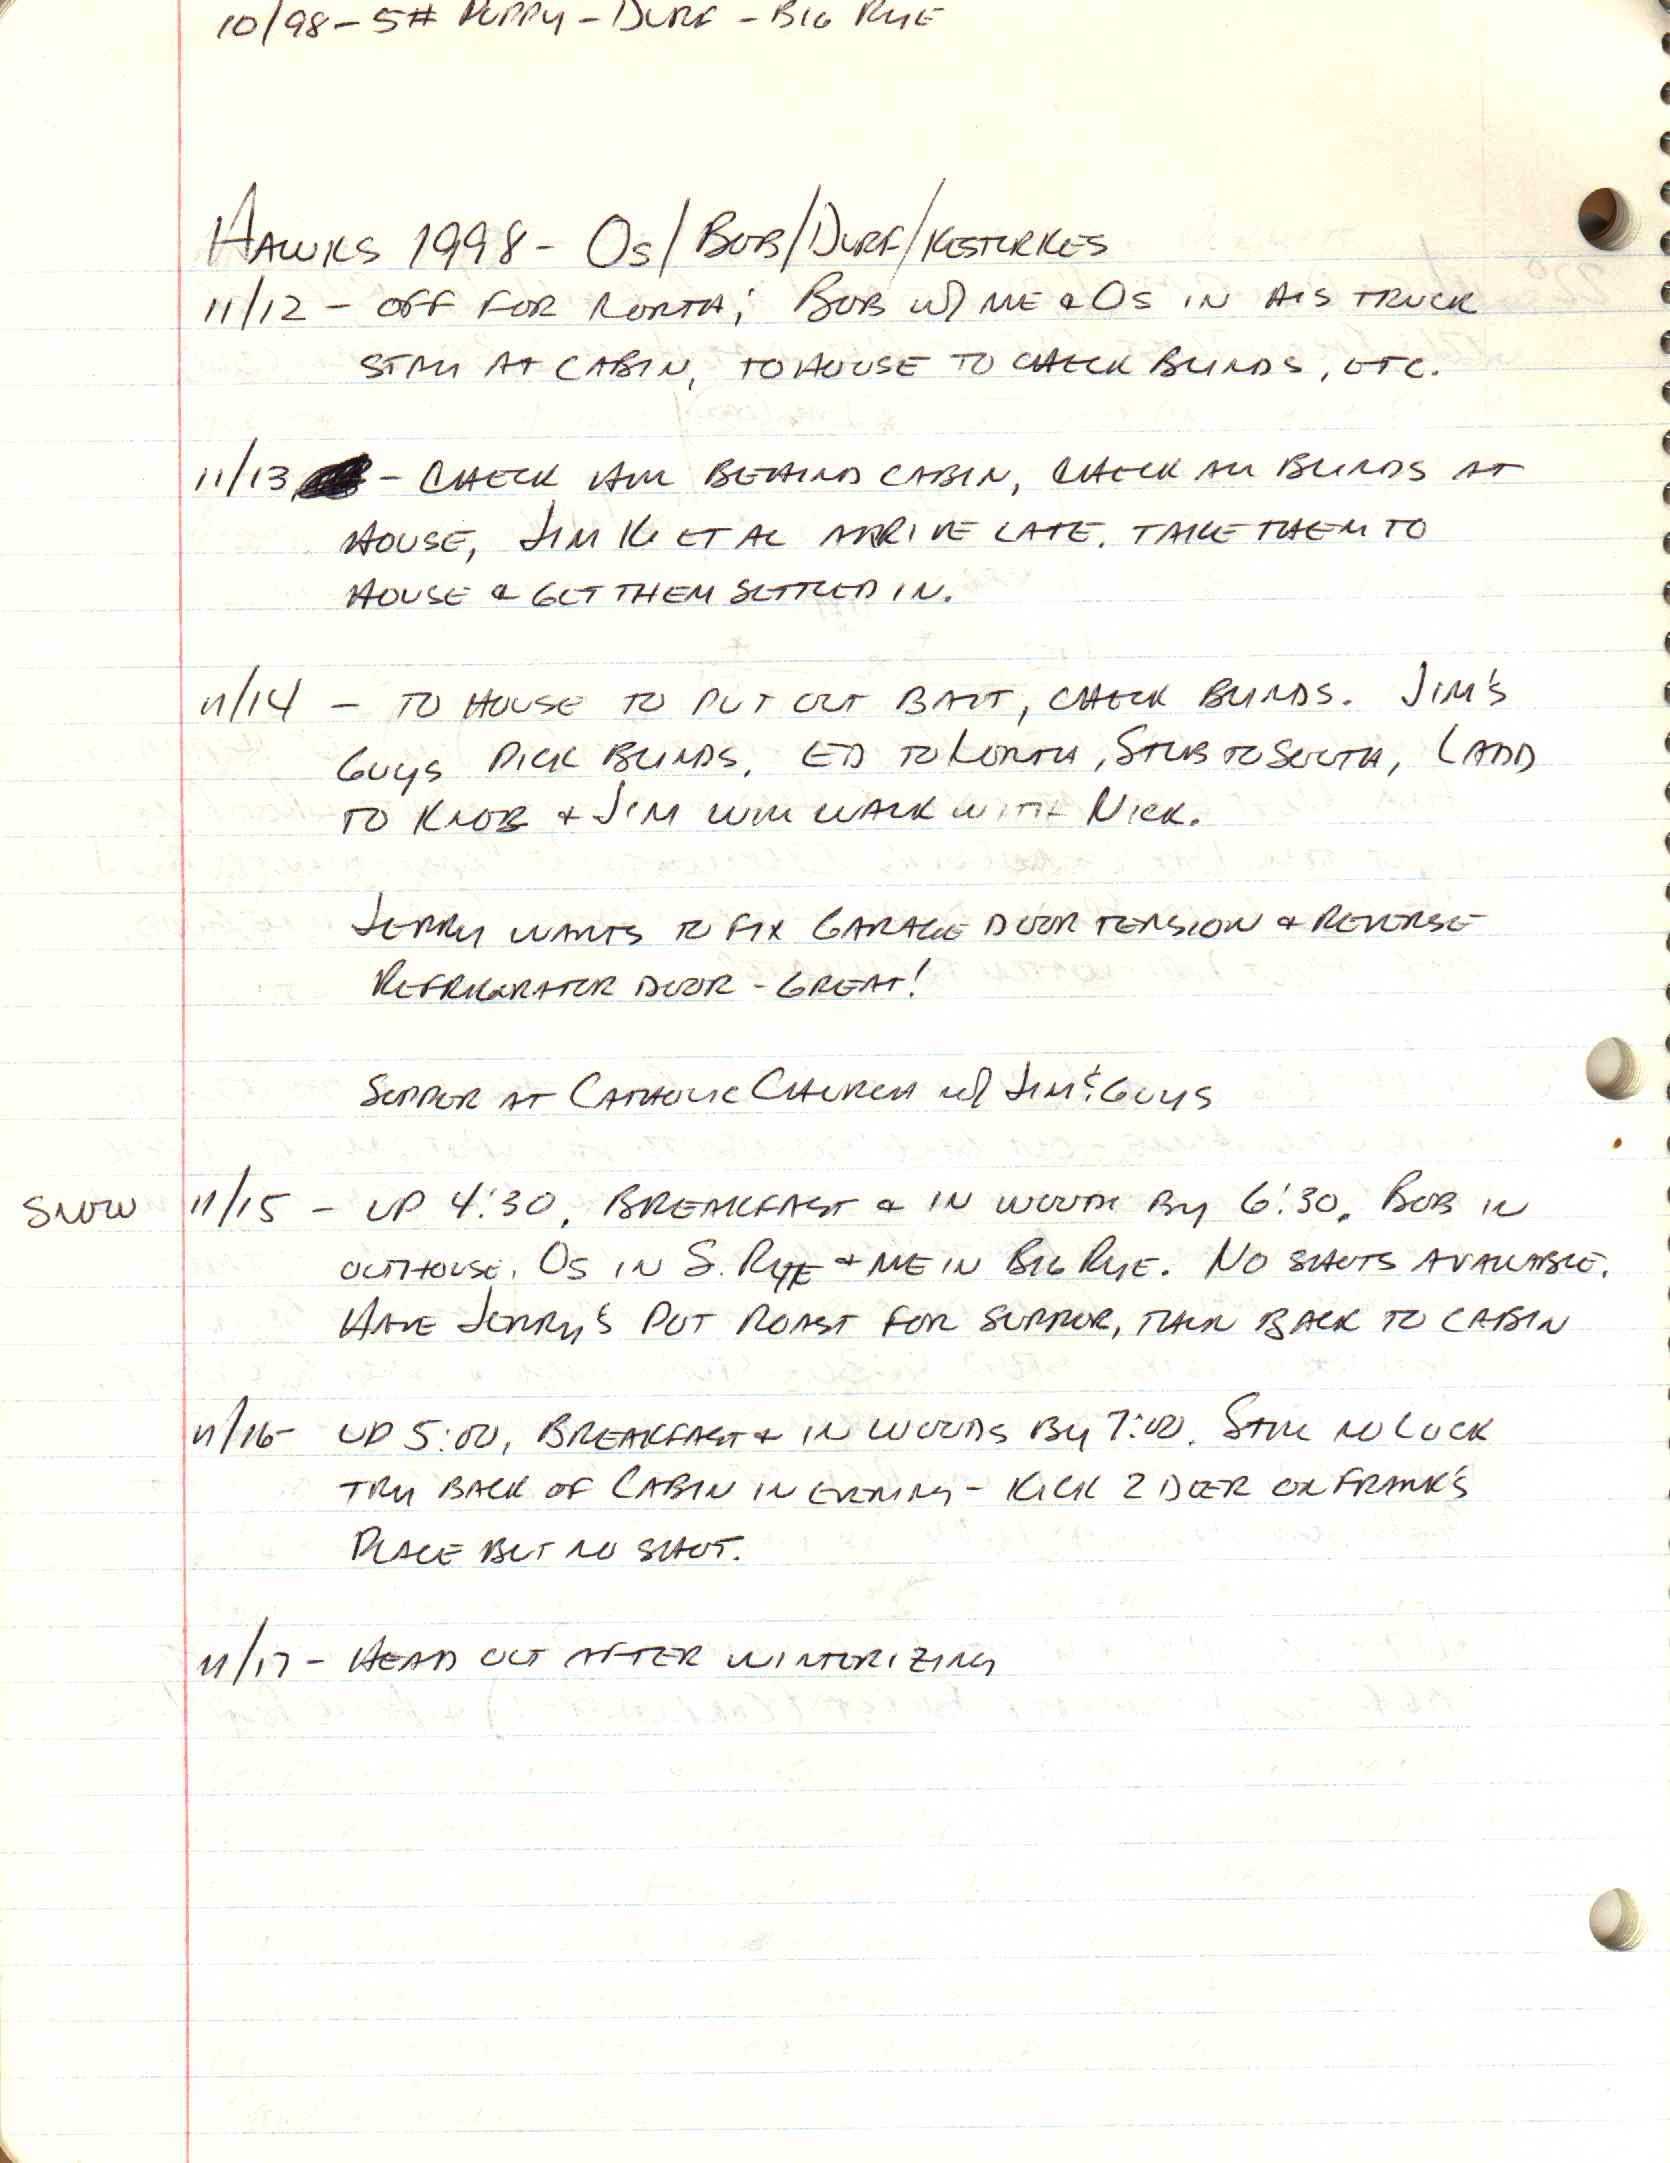 10/98 - 5# PUPPY - DURF - BIG RYE
HAWKS 1998 - OS/BOB/DURF/KESTERKES
11/12 - OFF FOR NORTH; BOB W/ ME & OS IN HIS TRUCK
STAY AT CABIN, TO HOUSE TO CHECK BLINDS, ETC.
11/13 - CHECK HILL BEHIND CABIN, CHECK ALL BLINDS AT
HOUSE, JIM K. ET AL ARRIVE LATE. TAKE THEM TO
HOUSE & GET THEM SETTLED IN.
11/14 - TO HOUSE TO PUT OUT BAIT, CHECK BLINDS. JIM'S
GUYS PICK BLINDS. ED TO NORTH, STUB TO SOUTH, LADD
TO KNOB & JIM WILL WALK WITH NICK.
JERRY WANTS TO FIX GARAGE DOOR TENSION & REVERSE
REFRIGERATOR DOOR - GREAT!
SUPPER AT CATHOLIC CHURCH W/ JIM & GUYS
SNOW 11/15 - UP 4:30, BREAKFAST & IN WOODS BY 6:30. BOB IN
OUTHOUSE, OS IN S. RYE & ME IN BIG RYE. NO SHOTS AVAILABLE.
HAVE JERRY'S POT ROAST FOR SUPPER, THEN BACK TO CABIN
11/16 - UP 5:00, BREAKFAST & IN WOODS BY 7:00. STILL NO LUCK
TRY BACK OF CABIN IN EVENING - KICK 2 DEER ON FRANK'S
PLACE BUT NO SHOT.
11/17 - HEAD OUT AFTER WINTERIZING